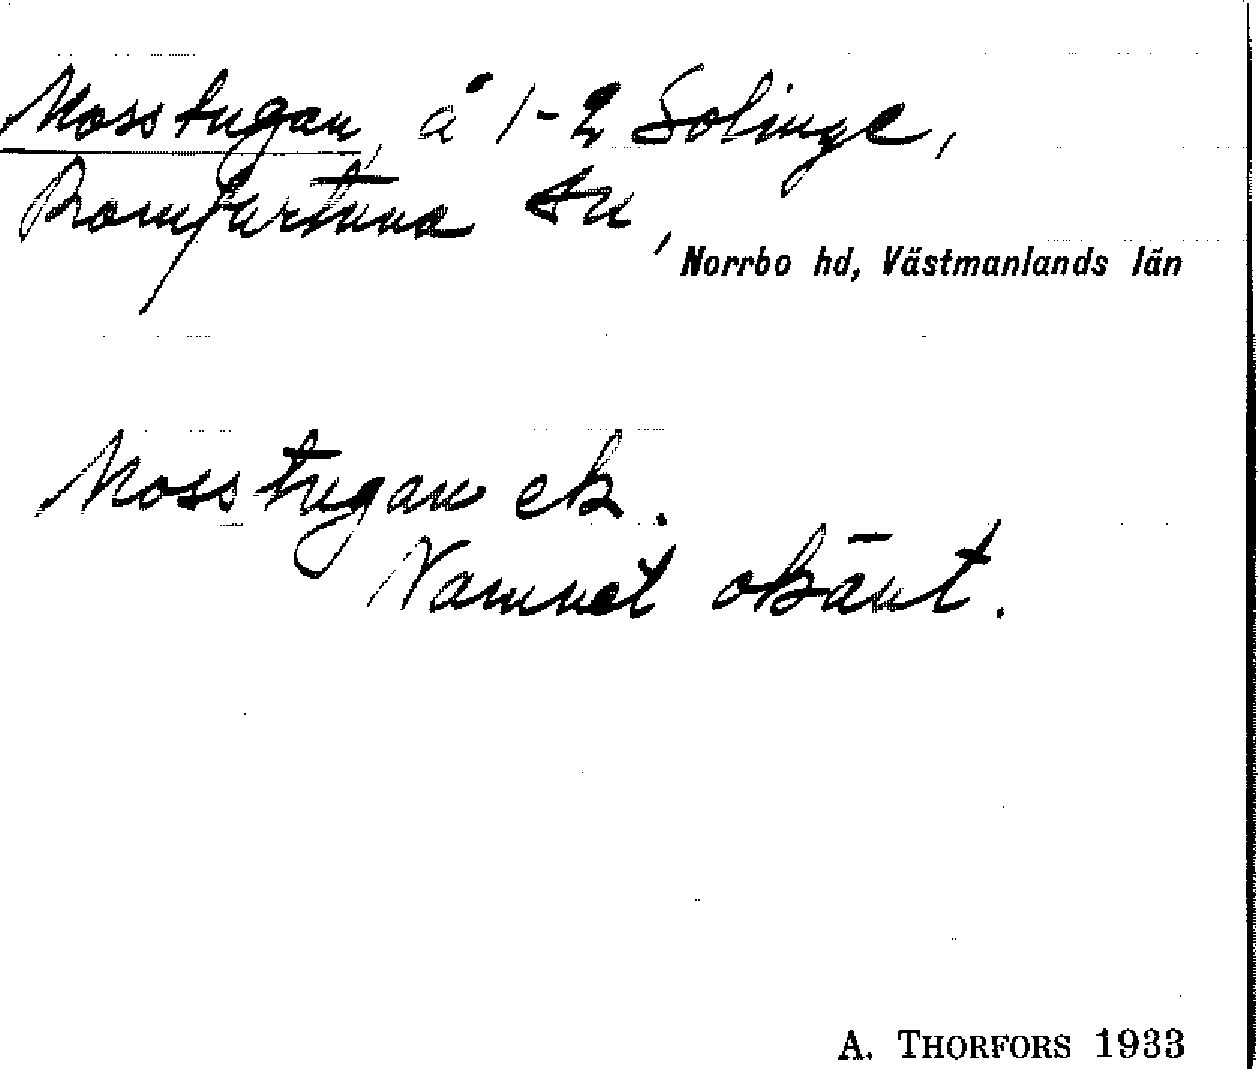 Mosstugan, å 1-2 Solinge,
Romfartuna sn,
Norrbo hd, Västmanlands län
Mosstugan ek.
Namnet okänt.
A. THORFORS 1933